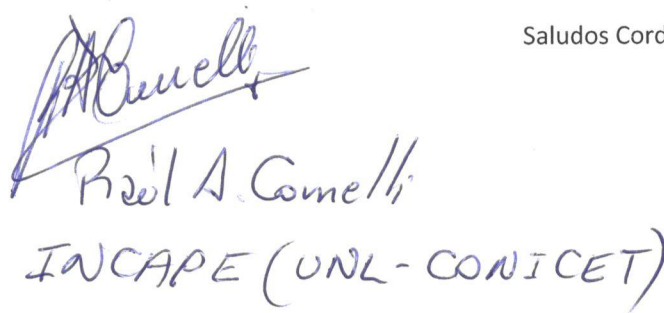 Saludos Cord
Raúl A. Comelli
INCAPE (UNL-CONICET)